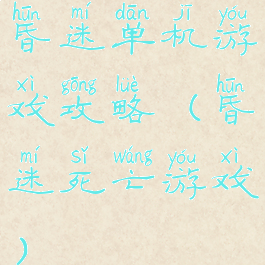 hūn mí dān jī yóu
昏迷单机游
xì gōng lüè hūn
戏攻略(昏
mí sǐ wáng yóu xì
迷死亡游戏
)